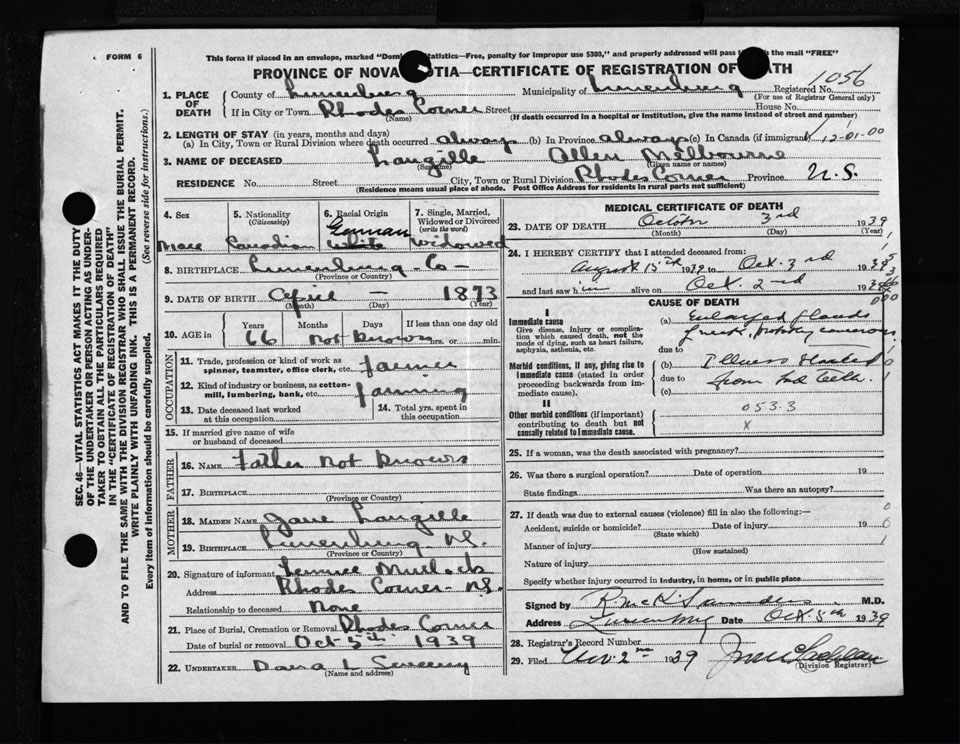 FORM 6
This form if placed in an envelope, marked "Domi tatistics—Free, penalty for improper use $300," and properly addressed will pass the mail "FREE"
PROVINCE OF NOVA OTIA—CERTIFICATE OF REGISTRATION OF DEATH
1. PLACE OF DEATH County of Lunenburg Municipality of Lunenburg Registered No. 1056
(For use of Registrar General only)
If in City or Town Rhodes Corner Street House No.
(Name) (If death occurred in a hospital or institution, give the name instead of street and number)
2. LENGTH OF STAY (in years, months and days)
(a) In City, Town or Rural Division where death occurred always (b) In Province always (c) In Canada (if immigrant) 12-01-00
3. NAME OF DECEASED Langille Allen Melbourne
(Surname) (Given name or names)
RESIDENCE No. Street City, Town or Rural Division Rhodes Corner Province N.S.
(Residence means usual place of abode. Post Office Address for residents in rural parts not sufficient)
4. Sex 5. Nationality (Citizenship) 6. Racial Origin 7. Single, Married, Widowed or Divorced (write the word)
German
Male Canadian White Widowed
8. BIRTHPLACE Lunenburg Co
(Province or Country)
9. DATE OF BIRTH April — 1873
(Month) (Day) (Year)
10. AGE in Years Months Days If less than one day old
66 not known hrs. or min.
OCCUPATION
11. Trade, profession or kind of work as spinner, teamster, office clerk, etc. farmer
12. Kind of industry or business, as cotton-mill, lumbering, bank, etc. farming
13. Date deceased last worked at this occupation
14. Total yrs. spent in this occupation
15. If married give name of wife or husband of deceased
FATHER
16. NAME Father not known
17. BIRTHPLACE
(Province or Country)
MOTHER
18. MAIDEN NAME Jane Langille
19. BIRTHPLACE Lunenburg N.S.
(Province or Country)
20. Signature of informant
Address Rhodes Corner N.S.
Relationship to deceased None
21. Place of Burial, Cremation or Removal Rhodes Corner
Date of burial or removal Oct 5th 1939
22. UNDERTAKER Dana L Sweeny
(Name and address)
MEDICAL CERTIFICATE OF DEATH
23. DATE OF DEATH October 3rd 1939
(Month) (Day) (Year)
24. I HEREBY CERTIFY that I attended deceased from:
August 15th 1939 to Oct. 3rd 1939
and last saw him alive on Oct. 2nd 1939
CAUSE OF DEATH
I
Immediate cause
Give disease, injury or complication which caused death, not the mode of dying, such as heart failure, asphyxia, asthenia, etc.
(a) Enlarged Glands
of neck, probably cancerous
due to
Morbid conditions, if any, giving rise to immediate cause (stated in order proceeding backwards from immediate cause).
(b) Illness started
due to from bad teeth.
(c)
II
Other morbid conditions (if important) contributing to death but not causally related to immediate cause.
053.3
x
25. If a woman, was the death associated with pregnancy?
26. Was there a surgical operation? Date of operation 19
State findings Was there an autopsy?
27. If death was due to external causes (violence) fill in also the following:—
Accident, suicide or homicide? Date of injury 19
(State which)
Manner of injury
(How sustained)
Nature of injury
Specify whether injury occurred in industry, in home, or in public place
Signed by R McK Saunders M.D.
Address Lunenburg Date Oct. 5th 1939
28. Registrar's Record Number
29. Filed Nov. 2nd 1939
(Division Registrar)
SEC. 46—VITAL STATISTICS ACT MAKES IT THE DUTY
OF THE UNDERTAKER OR PERSON ACTING AS UNDER-
TAKER TO OBTAIN ALL THE PARTICULARS REQUIRED
IN THE "CERTIFICATE OF REGISTRATION OF DEATH"
AND TO FILE THE SAME WITH THE DIVISION REGISTRAR WHO SHALL ISSUE THE BURIAL PERMIT.
WRITE PLAINLY WITH UNFADING INK. THIS IS A PERMANENT RECORD.
Every item of information should be carefully supplied. (See reverse side for instructions.)